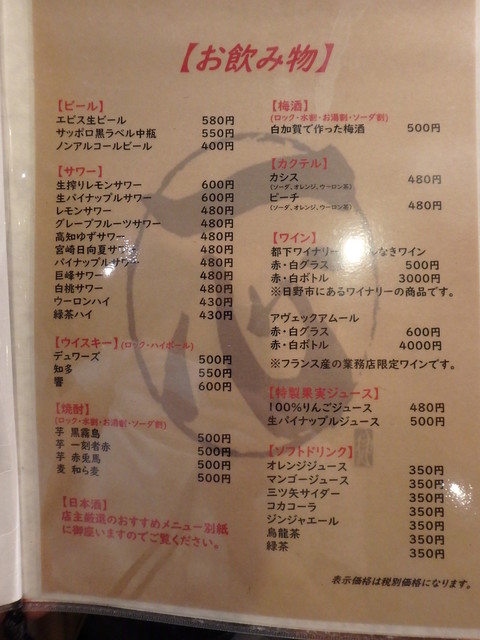 【お飲み物】
【ビール】
エビス生ビール 580円
サッポロ黒ラベル中瓶 550円
ノンアルコールビール 400円
【サワー】
生搾りレモンサワー 600円
生パイナップルサワー 600円
レモンサワー 480円
グレープフルーツサワー 480円
高知ゆずサワー 480円
宮崎日向夏サワー 480円
パイナップルサワー 480円
巨峰サワー 480円
白桃サワー 480円
ウーロンハイ 430円
緑茶ハイ 430円
【ウイスキー】(ロック・ハイボール)
デュワーズ 500円
知多 550円
響 600円
【焼酎】
(ロック・水割・お湯割・ソーダ割)
芋 黒霧島 500円
芋 一刻者赤 500円
芋 赤兎馬 500円
麦 和ら麦 500円
【日本酒】
店主厳選のおすすめメニュー別紙
に御座いますのでご覧ください。
【梅酒】
(ロック・水割・お湯割・ソーダ割)
白加賀で作った梅酒 500円
【カクテル】
カシス 480円
(ソーダ、オレンジ、ウーロン茶)
ピーチ 480円
(ソーダ、オレンジ、ウーロン茶)
【ワイン】
都下ワイナリー なきワイン
赤・白グラス 500円
赤・白ボトル 3000円
※日野市にあるワイナリーの商品です。
アヴェックアムール
赤・白グラス 600円
赤・白ボトル 4000円
※フランス産の業務店限定ワインです。
【特製果実ジュース】
100%りんごジュース 480円
生パイナップルジュース 500円
【ソフトドリンク】
オレンジジュース 350円
マンゴージュース 350円
三ツ矢サイダー 350円
コカコーラ 350円
ジンジャエール 350円
烏龍茶 350円
緑茶 350円
表示価格は税別価格になります。